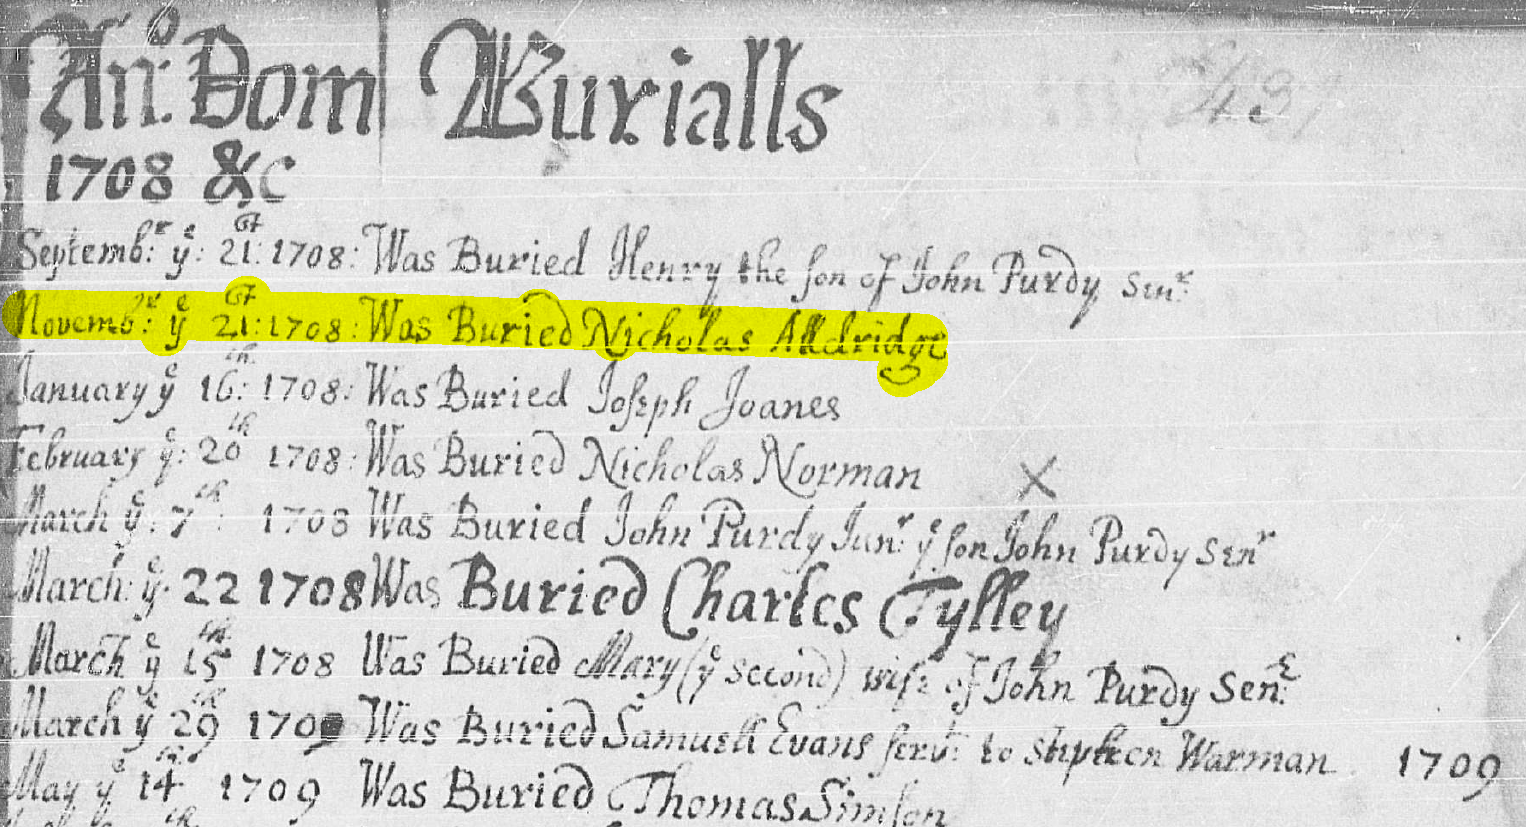 An:º Dom Burialls
1708 &c
Septemb:ʳ yᵉ: 21:ˢᵗ 1708: Was Buried Henry the son of John Purdy Senʳ:
Novemb:ʳ yᵉ 21:ˢᵗ 1708: Was Buried Nicholas Alldridge
January yᵉ 16:ᵗʰ 1708: Was Buried Joseph Joanes
February yᵉ: 20ᵗʰ 1708: Was Buried Nicholas Norman X
March yᵉ: 7ᵗʰ: 1708 Was Buried John Purdy Junʳ: yᵉ son John Purdy Senʳ
March: yᵉ. 22 1708 Was Buried Charles Tylley
March yᵉ 15ᵗʰ 1708 Was Buried Mary (yᵉ second) wife of John Purdy Sen:ʳ
March yᵉ 29ᵗʰ 1709 Was Buried Samuell Evans servᵗ: to Stephen Warman 1709
May yᵉ 14ᵗʰ 1709 Was Buried Thomas Simson